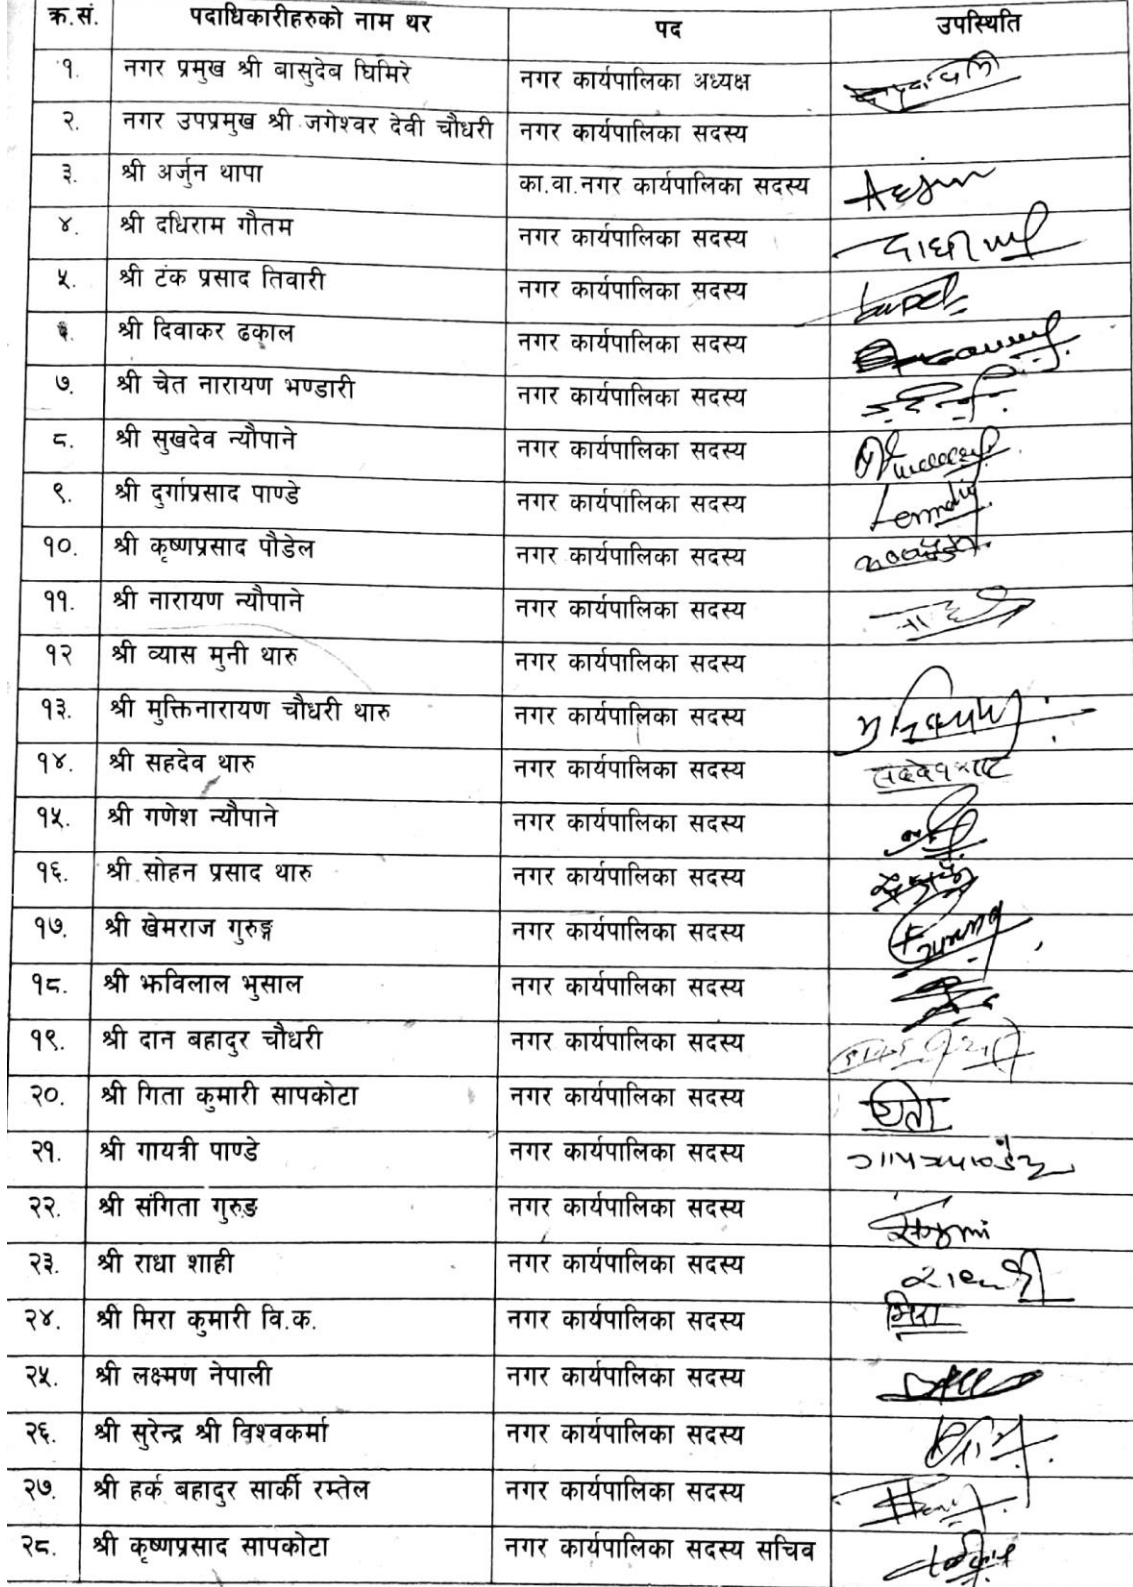 क्र.सं. पदाधिकारीहरुको नाम थर पद उपस्थिति
१. नगर प्रमुख श्री बासुदेब घिमिरे नगर कार्यपालिका अध्यक्ष
२. नगर उपप्रमुख श्री जगेश्वर देवी चौधरी नगर कार्यपालिका सदस्य
३. श्री अर्जुन थापा का.वा.नगर कार्यपालिका सदस्य
४. श्री दधिराम गौतम नगर कार्यपालिका सदस्य
५. श्री टंक प्रसाद तिवारी नगर कार्यपालिका सदस्य
श्री दिवाकर ढकाल नगर कार्यपालिका सदस्य
७. श्री चेत नारायण भण्डारी नगर कार्यपालिका सदस्य
८. श्री सुखदेव न्यौपाने नगर कार्यपालिका सदस्य
९. श्री दुर्गाप्रसाद पाण्डे नगर कार्यपालिका सदस्य
१०. श्री कृष्णप्रसाद पौडेल नगर कार्यपालिका सदस्य
११. श्री नारायण न्यौपाने नगर कार्यपालिका सदस्य
१२ श्री व्यास मुनी थारु नगर कार्यपालिका सदस्य
१३. श्री मुक्तिनारायण चौधरी थारु नगर कार्यपालिका सदस्य
१४. श्री सहदेव थारु नगर कार्यपालिका सदस्य
१५. श्री गणेश न्यौपाने नगर कार्यपालिका सदस्य
१६. श्री सोहन प्रसाद थारु नगर कार्यपालिका सदस्य
१७. श्री खेमराज गुरुङ्ग नगर कार्यपालिका सदस्य
१८. श्री झविलाल भुसाल नगर कार्यपालिका सदस्य
१९. श्री दान बहादुर चौधरी नगर कार्यपालिका सदस्य
२०. श्री गिता कुमारी सापकोटा नगर कार्यपालिका सदस्य
२१. श्री गायत्री पाण्डे नगर कार्यपालिका सदस्य
२२. श्री संगिता गुरुङ नगर कार्यपालिका सदस्य
२३. श्री राधा शाही नगर कार्यपालिका सदस्य
२४. श्री मिरा कुमारी वि.क. नगर कार्यपालिका सदस्य मिरा
२५. श्री लक्ष्मण नेपाली नगर कार्यपालिका सदस्य
२६. श्री सुरेन्द्र श्री विश्वकर्मा नगर कार्यपालिका सदस्य
२७. श्री हर्क बहादुर सार्की रम्तेल नगर कार्यपालिका सदस्य
२८. श्री कृष्णप्रसाद सापकोटा नगर कार्यपालिका सदस्य सचिव